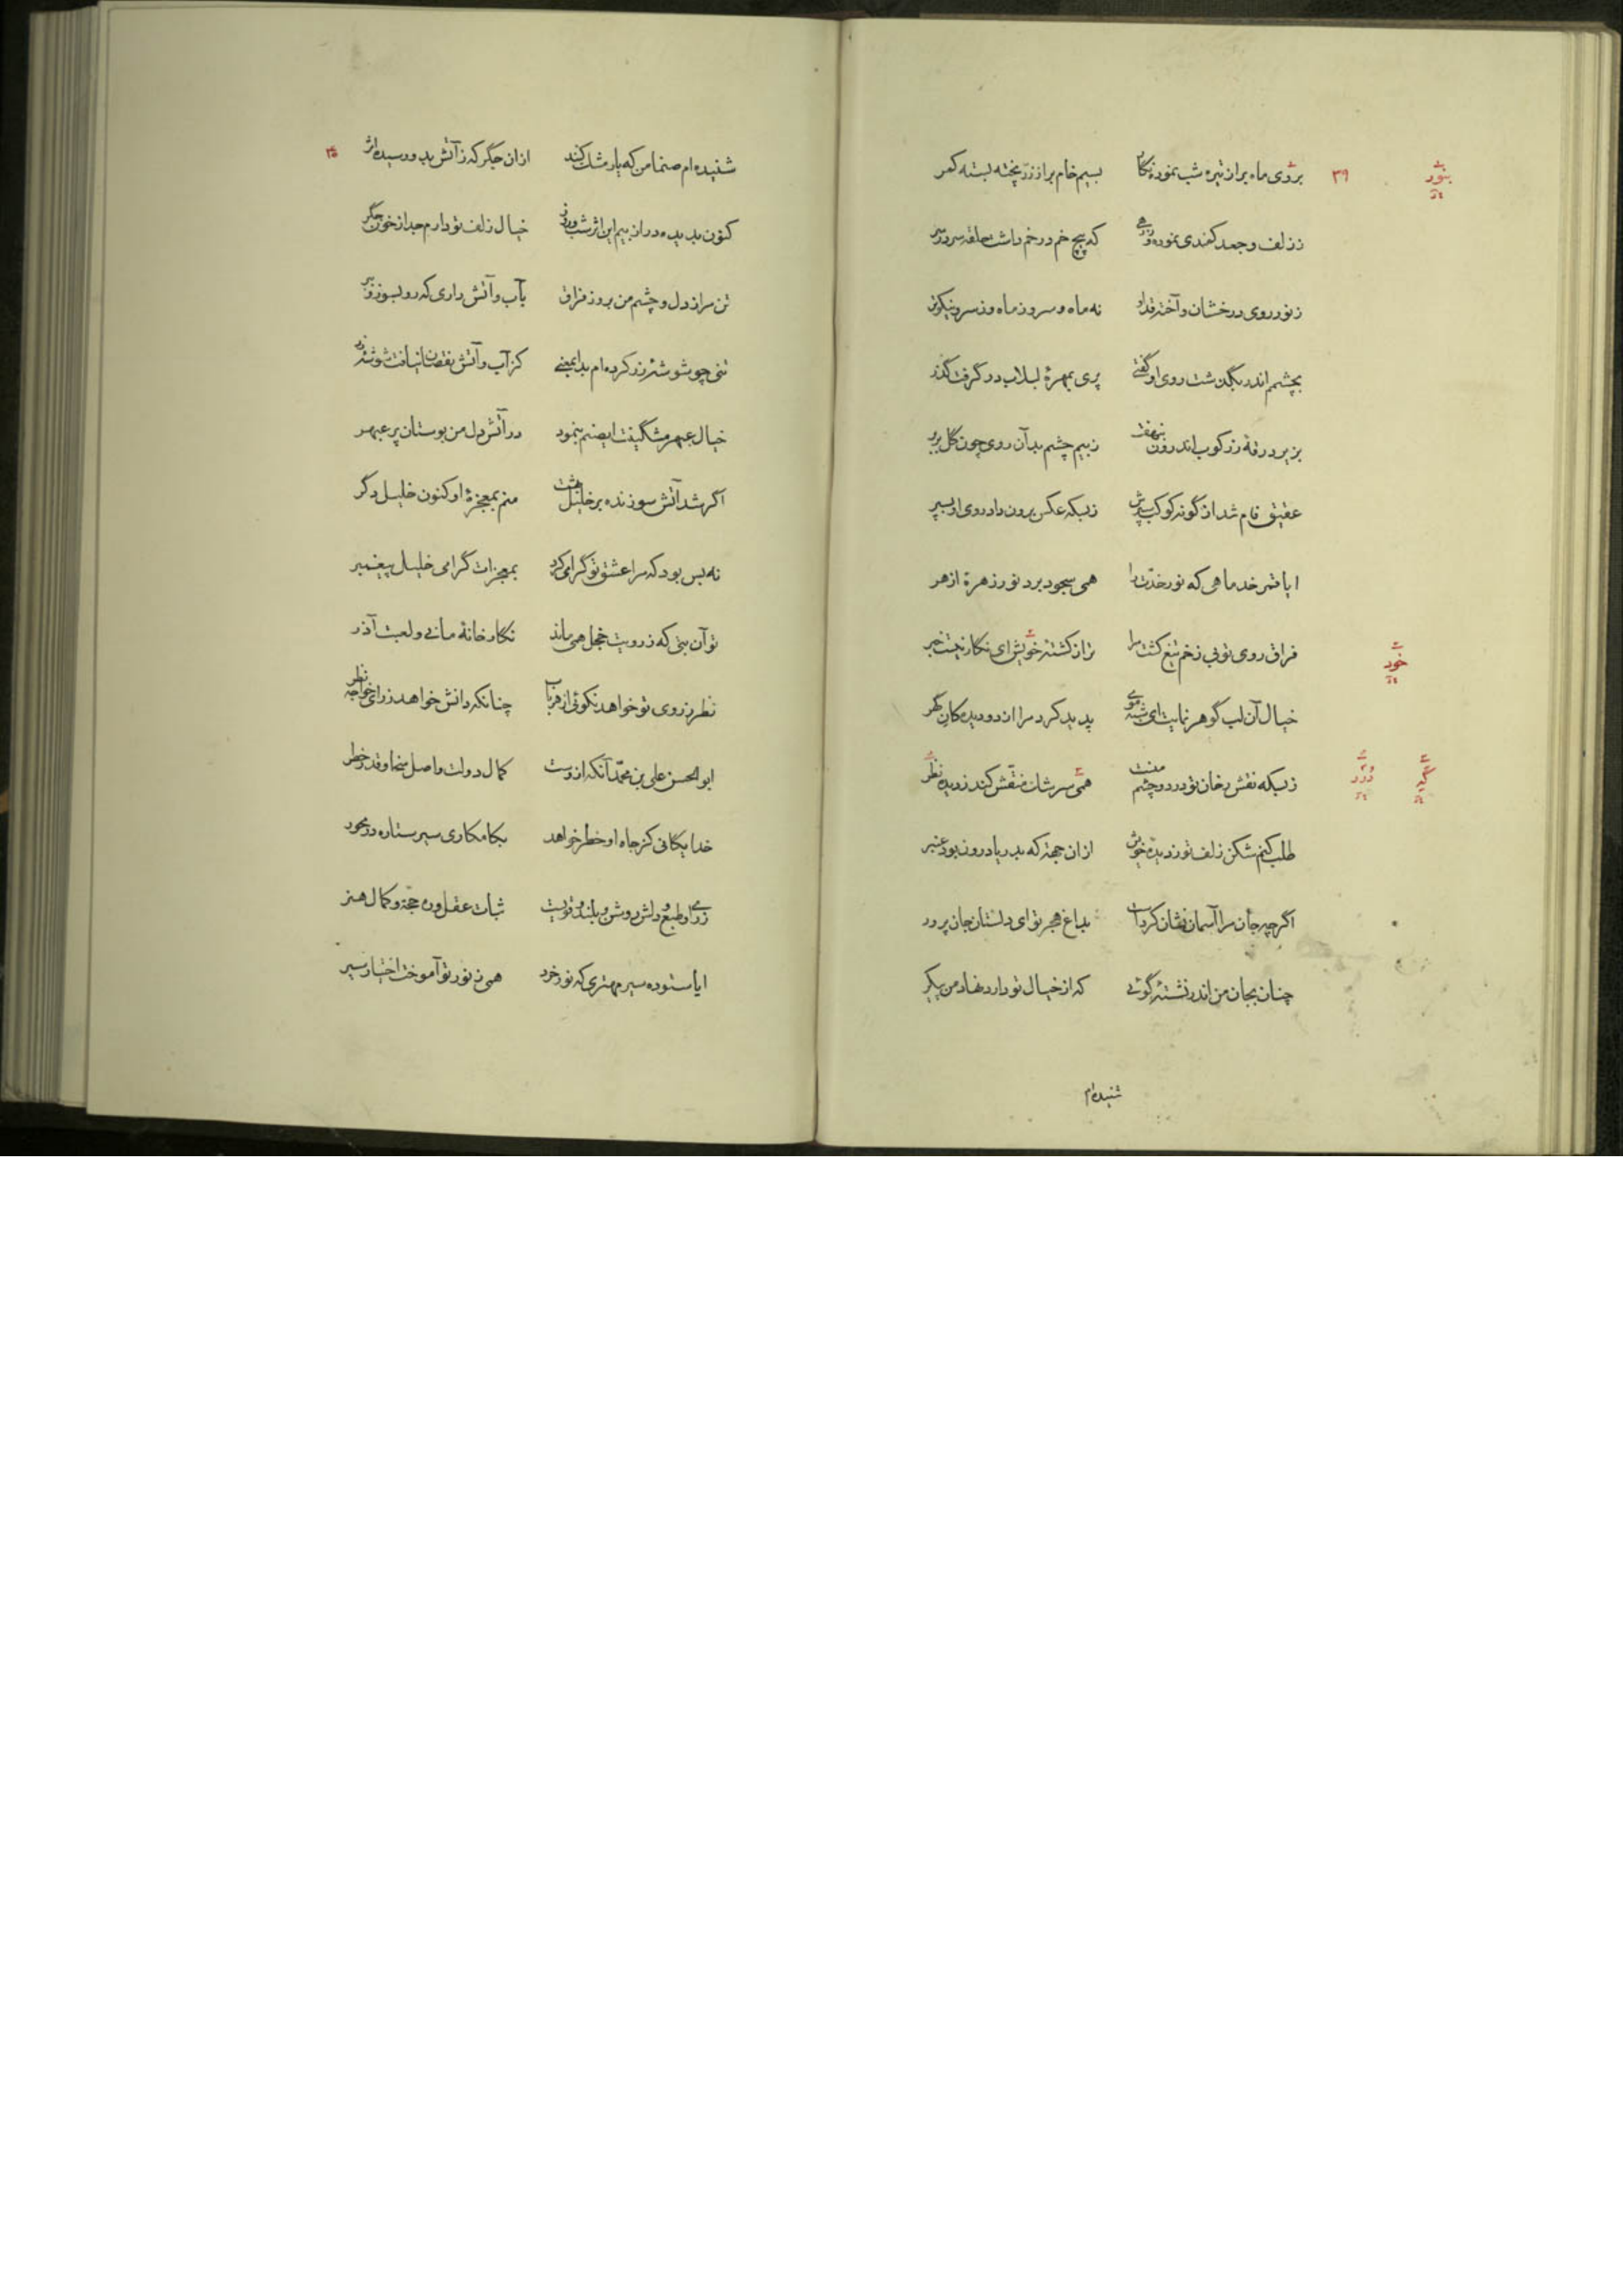 بروی ماه بر از تیره شب نموده نگار بسیم خام بر از زر پخته بسته کمر ۳۹ بنور
ز زلف و جعد کمندی نموده که پیچ خم در خم داشت حلقه سر در سر
ز نور روی درخشان و آخته قد او نه ماه و سرو ز ماه و ز سرو نیکوتر
بچشم اندر بگذشت روی او گفتی پری بمهرهٔ لبلاب در گرفت گذر
بزیر ورقه زرکوب اندرون بنهفت ز بیم چشم بد آن روی چون گل بربر
عقیق فام شد از گونه کوکب سپرش ز بسکه عکس برون داد روی او بسپر
ایا قمر خد ماهی که نور خدّت را همی سجود برد نور زهرهٔ ازهر
فراق روی تو بی زخم تیغ کشت مرا تو از کشتهٔ خویش ای نگار نیست خبر
خود
خیال آن لب گوهر نمایت ای پدید کرد مرا از دو دیده کان گهر
ز بسکه نقش رخان تو در دو چشم منست همی سرشک منقش کند ز دیده نظر
طلب کنم شکن زلف تو ز دیدهٔ خویش از آن جهة که بدریا درون بود عنبر
اگرچه جان مرا آسمان نشان کردست بداغ هجر تو ای دلستان جان پرور
چنان بجان من اندر نشستهٔ گوئی که از خیال تو دارد نهاد من پیکر
شنیده‌ام
شنیده‌ام صنما من که یار مشک کند از آن جگر که ز آتش بدو رسیده اثر ۴۰
کنون بدیده در از بیم این اثر شب و روز خیال زلف تو دارم جدا ز خون جگر
تن مرا ز دل و چشم من بروز فراق بآب و آتش داری که
تنی چو شوشهٔ زر کرده‌ام بدانمعنی کز آب و آتش نقصان نیافت شوشهٔ زر
خیال عبهر مشگینت ای صنم بنمود در آتش دل من بوستان پر عبهر
اگر شد آتش سوزنده بر خلیل بهشت منم بمعجزهٔ او کنون خلیل دگر
نه بس بود که مرا عشق تو گرامی کرد بمعجزات گرامی خلیل پیغمبر
تو آن بتی که ز رویت خجل همی ماند نگارخانهٔ مانی و لعبت آذر
نظر ز روی تو خواهد نکوئی از هر باب چنانکه دانش خواهد ز رای خواجه نظر
ابو الحسن علی بن محمّد آنکه ازوست کمال دولت و اصل سخا و قدر و خطر
خدایگانی کز جاه او خطر خواهد بکامکاری سیر ستاره در محور
ز رای و طبع و دلش روشن و بلند و قویست ثبات عقل و ره حجّة و کمال هنر
ایا ستوده سیر مهتری که نور خرد همی ز نور تو آموخت اختیار سیر